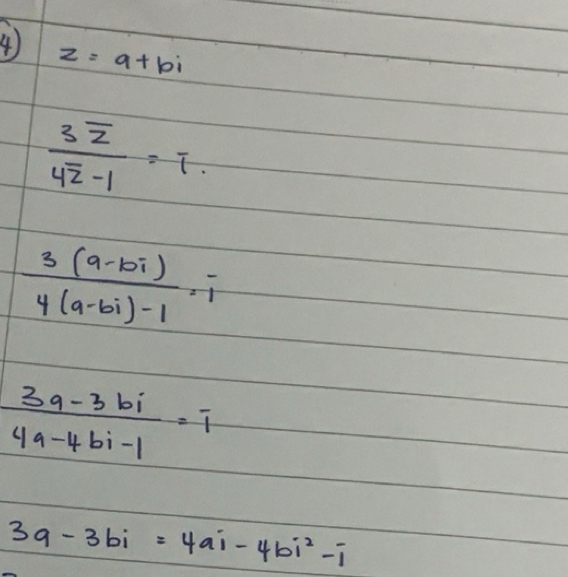 4) z = a+bi
3z̅ / 4z̅ -1 = i.
3 (a-bi) / 4 (a-bi) -1 = i
3a-3bi / 4a-4bi-1 = i
3a-3bi = 4ai-4bi²-i